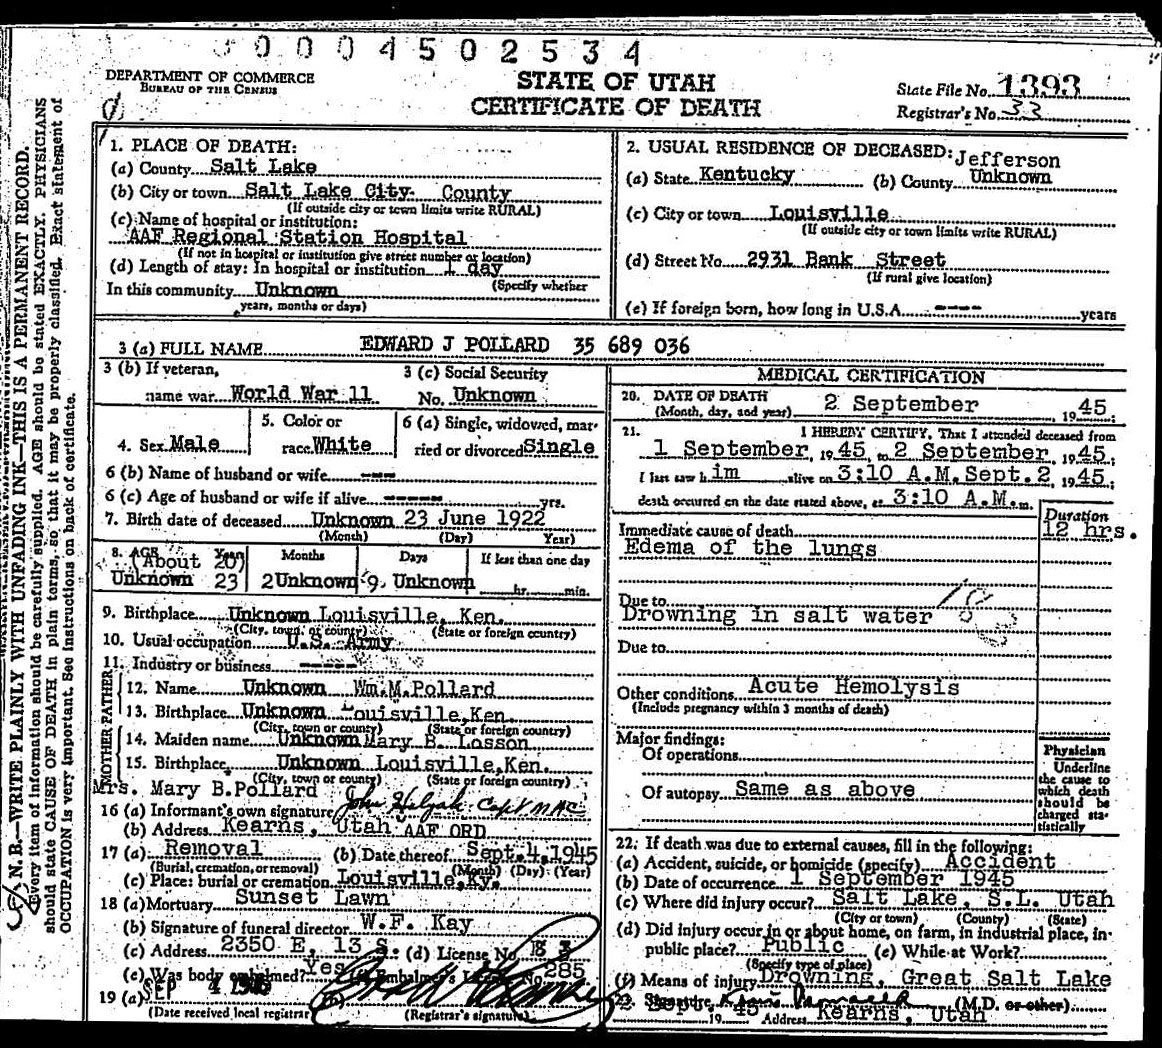 0 0 0 0 4 5 0 2 5 3 4
DEPARTMENT OF COMMERCE
BUREAU OF THE CENSUS
STATE OF UTAH
CERTIFICATE OF DEATH
State File No. 1393
Registrar's No. 33
N. B.—WRITE PLAINLY WITH UNFADING INK—THIS IS A PERMANENT RECORD.
Every item of information should be carefully supplied. AGE should be stated EXACTLY. PHYSICIANS
should state CAUSE OF DEATH in plain terms, so that it may be properly classified. Exact statement of
OCCUPATION is very important. See instructions on back of certificate.
1. PLACE OF DEATH:
(a) County Salt Lake
(b) City or town Salt Lake City County
(If outside city or town limits write RURAL)
(c) Name of hospital or institution:
AAF Regional Station Hospital
(If not in hospital or institution give street number or location)
(d) Length of stay: In hospital or institution 1 day
(Specify whether
In this community Unknown
years, months or days)
2. USUAL RESIDENCE OF DECEASED:
Jefferson
(a) State Kentucky (b) County Unknown
(c) City or town Louisville
(If outside city or town limits write RURAL)
(d) Street No. 2931 Bank Street
(If rural give location)
(e) If foreign born, how long in U.S.A. ---- years
3 (a) FULL NAME EDWARD J POLLARD 35 689 036
3 (b) If veteran,
name war World War 11
3 (c) Social Security
No. Unknown
4. Sex Male
5. Color or
race White
6 (a) Single, widowed, mar-
ried or divorced Single
6 (b) Name of husband or wife ---
6 (c) Age of husband or wife if alive ----- yrs.
7. Birth date of deceased Unknown 23 June 1922
(Month) (Day) Year)
8. AGE Years Months Days If less than one day
(About 20)
Unknown 23 2 Unknown 9 Unknown hr. min.
9. Birthplace Unknown Louisville, Ken.
(City, town, or county) (State or foreign country)
10. Usual occupation U.S. Army
11. Industry or business -----
FATHER
12. Name Unknown Wm.M.Pollard
13. Birthplace Unknown Louisville,Ken.
(City, town or county) (State or foreign country)
MOTHER
14. Maiden name Unknown Mary B. Losson
15. Birthplace Unknown Louisville,Ken.
(City, town or county) (State or foreign country)
Mrs. Mary B.Pollard
16 (a) Informant's own signature John Capt MAC
(b) Address Kearns, Utah AAF ORD
17 (a) Removal (b) Date thereof Sept.4,1945
(Burial, cremation, or removal) (Month) (Day) (Year)
(c) Place: burial or cremation Louisville,Ky.
18 (a) Mortuary Sunset Lawn
(b) Signature of funeral director W.F. Kay
(c) Address 2350 E. 13 S. (d) License No.
(e) Was body embalmed? Yes (f) Embalmer's License No. 285
19 (a) SEP 4 1945 (b)
(Date received local registrar) (Registrar's signature)
MEDICAL CERTIFICATION
20. DATE OF DEATH
(Month, day, and year) 2 September , 1945;
21. I HEREBY CERTIFY, That I attended deceased from
1 September, 1945, to 2 September, 1945;
I last saw him alive on 3:10 A.M.Sept.2, 1945;
death occurred on the date stated above, at 3:10 A.M. m.
Duration
Immediate cause of death 12 hrs.
Edema of the lungs
Due to
Drowning in salt water
Due to
Other conditions Acute Hemolysis
(Include pregnancy within 3 months of death)
Major findings:
Of operations
Of autopsy Same as above
Physician
Underline
the cause to
which death
should be
charged sta-
tistically
22. If death was due to external causes, fill in the following:
(a) Accident, suicide, or homicide (specify) Accident
(b) Date of occurrence 1 September 1945
(c) Where did injury occur? Salt Lake, S.L. Utah
(City or town) (County) (State)
(d) Did injury occur in or about home, on farm, in industrial place, in-
public place? Public (e) While at Work?
(Specify type of place)
(f) Means of injury Drowning, Great Salt Lake
23. Signature (M.D. or other)
2 Sept. 45 19 Address Kearns, Utah